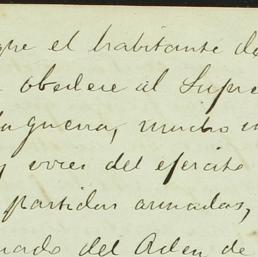 que el habitante de
obedece al Supre
la guerra, mucho
y voces del ejercito
partidas armadas,
del Orden de